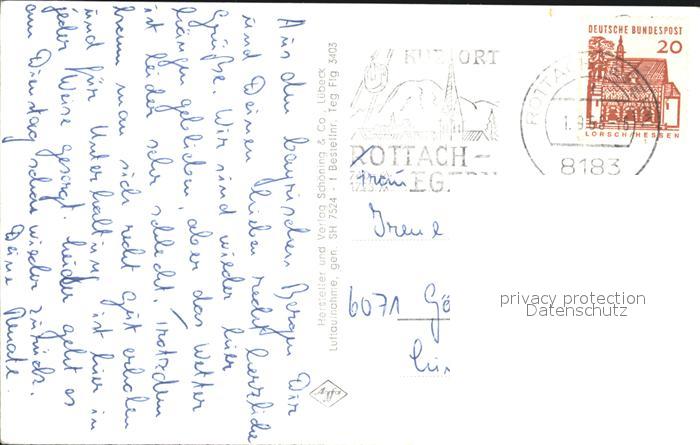 Aus den bayrischen Bergen Dir
und Deinen Lieben recht herzliche
Grüße. Wir sind wieder hier
hängen geblieben, aber das Wetter
ist leider sehr schlecht. Trotzdem
kann man sich recht gut erholen
und für Unterhaltung ist hier in
jeder Weise gesorgt. Leider geht es
am Dienstag schon wieder zurück.
Deine Renate.
Hersteller und Verlag Schöning & Co. Lübeck
Luftaufnahme, gen. SH 7524 - 1 Bestellnr. Teg Ftg 3403
KURORT
ROTTACH-
EGERN
ROTTACH-
8183
DEUTSCHE BUNDESPOST
20
LORSCH/HESSEN
Frau
Irene
6071 Gö
privacy protection
Datenschutz